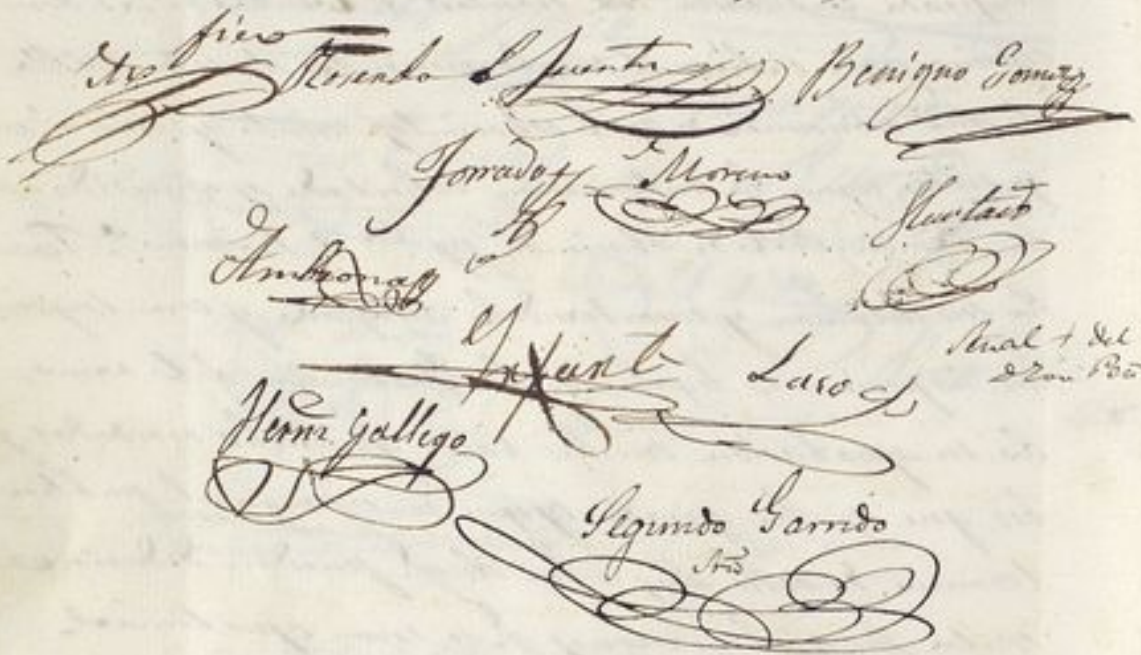 Rosendo L Fuentes Benigno Gomez
Moreno
Hurtado
Ambrona
Infante
Laso
Señal + del
Hernz Gallego
Segundo Garrido
Srio